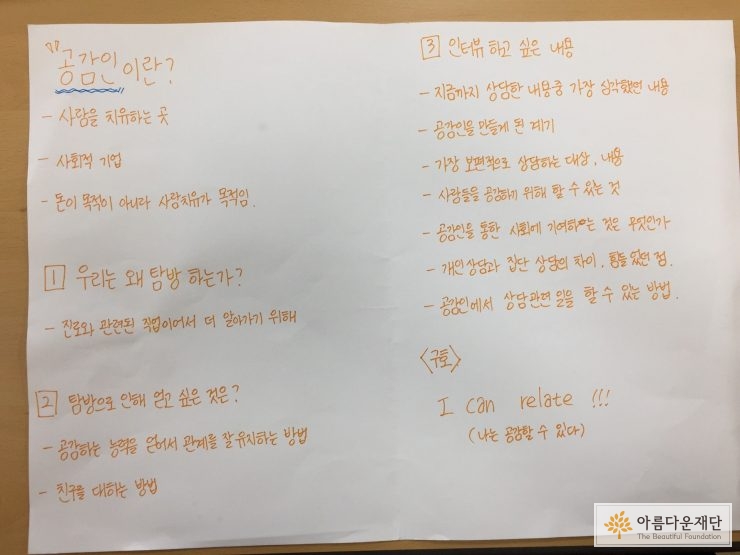 "공감인이란?
- 사람을 치유하는 곳
- 사회적 기업
- 돈이 목적이 아니라 사람치유가 목적임.
1 우리는 왜 탐방 하는가?
- 진로와 관련된 직업이어서 더 알아가기 위해
2 탐방으로 인해 얻고 싶은 것은?
- 공감하는 능력을 얻어서 관계를 잘 유지하는 방법
- 친구를 대하는 방법
3 인터뷰 하고 싶은 내용
- 지금까지 상담한 내용중 가장 심각했던 내용
- 공감인을 만들게 된 계기
- 가장 보편적으로 상담하는 대상, 내용
- 사람들을 공감하기 위해 할 수 있는 것
- 공감인을 통한 사회에 기여하는 것은 무엇인가
- 개인상담과 집단 상담의 차이, 힘들었던 점.
- 공감인에서 상담관련 일을 할 수 있는 방법.
<구호>
I can relate !!!
(나는 공감할 수 있다)
아름다운재단
The Beautiful Foundation